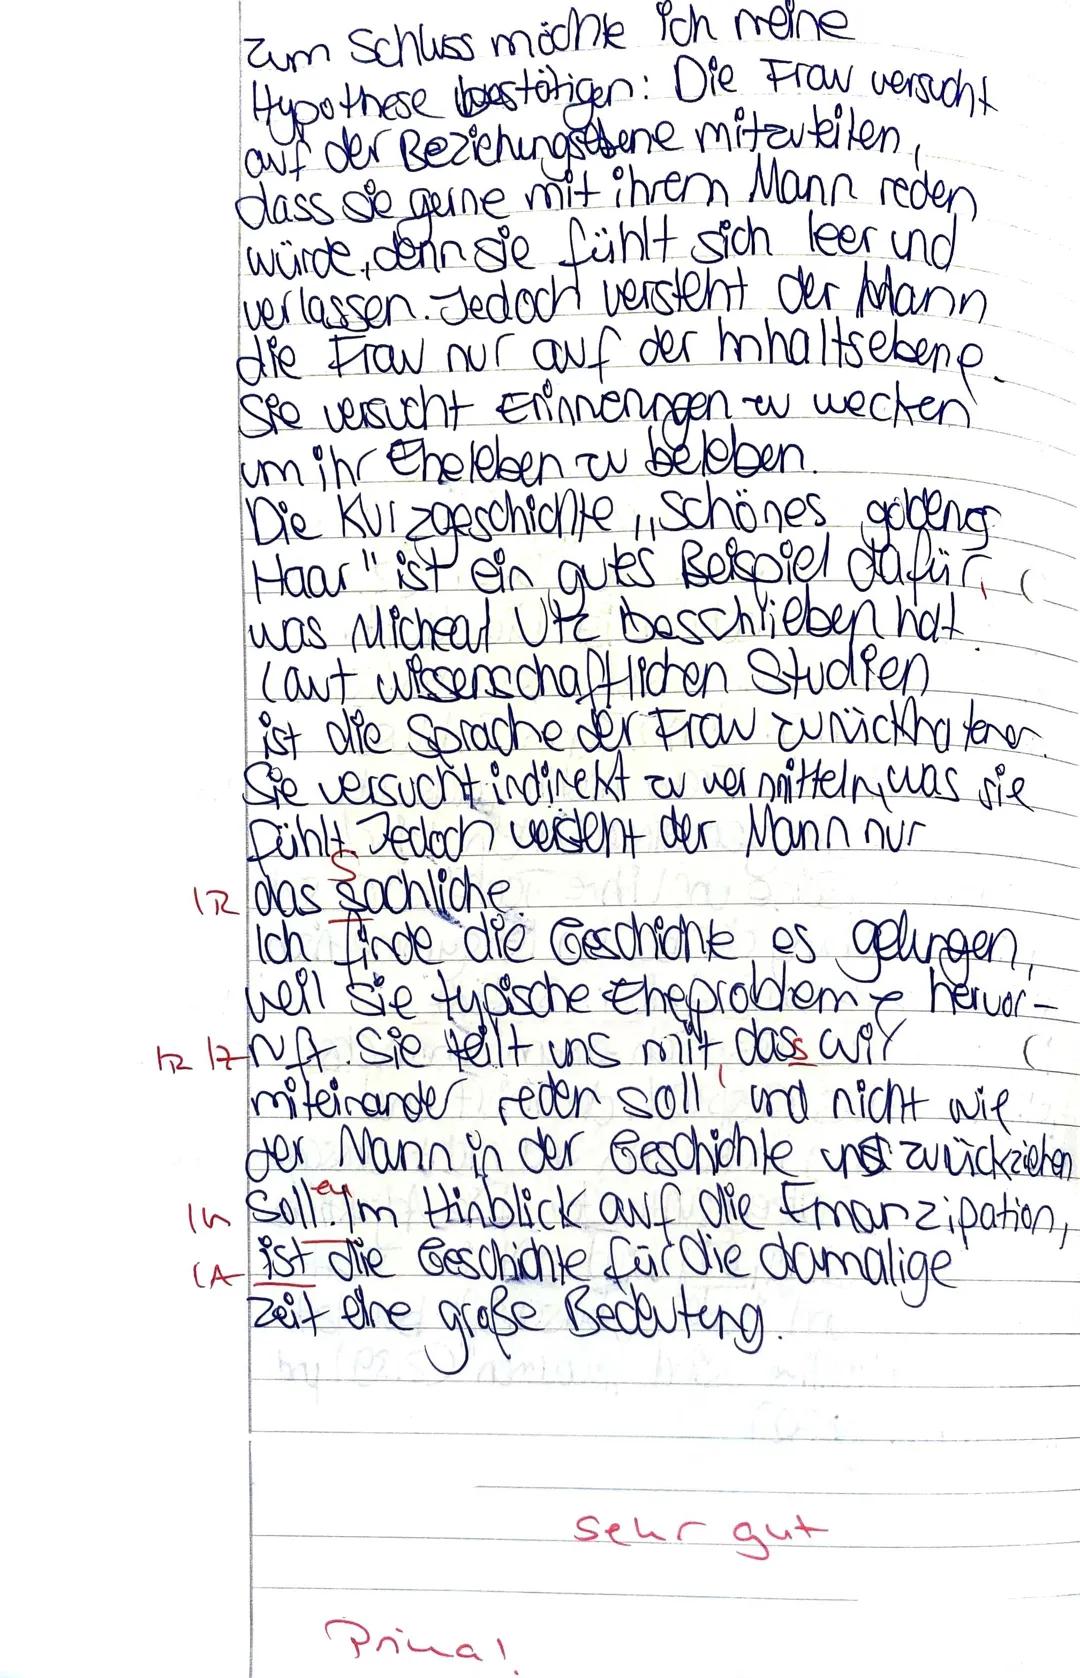 Zum Schluss möchte ich meine
Hypothese bestätigen: Die Frau versucht
auf der Beziehungsebene mitzuteilen,
dass sie gerne mit ihrem Mann reden
würde, denn sie fühlt sich leer und
verlassen. Jedoch versteht der Mann
die Frau nur auf der Inhaltsebene.
Sie versucht Erinnerungen zu wecken
um ihr Eheleben zu beleben.
Die Kurzgeschichte „schönes goldenes
Haar" ist ein gutes Beispiel dafür, (
was Micheal Utz beschrieben hat.
Laut wissenschaftlichen Studien
ist die Sprache der Frau zurückhaltener.
Sie versucht indirekt zu vermitteln, was sie
fühlt. Jedoch versteht der Mann nur
S
IR das sachliche.
Ich finde die Geschichte es gelungen,
weil sie typische Eheprobleme hervor-
ruft. Sie teilt uns mit, dass wir (
miteinander reden soll und nicht wie
der Mann in der Geschichte uns zurückziehen
soll. en Im Hinblick auf die Emanzipation,
IA ist die Geschichte für die damalige
Zeit eine große Bedeutung.
sehr gut
Prima!